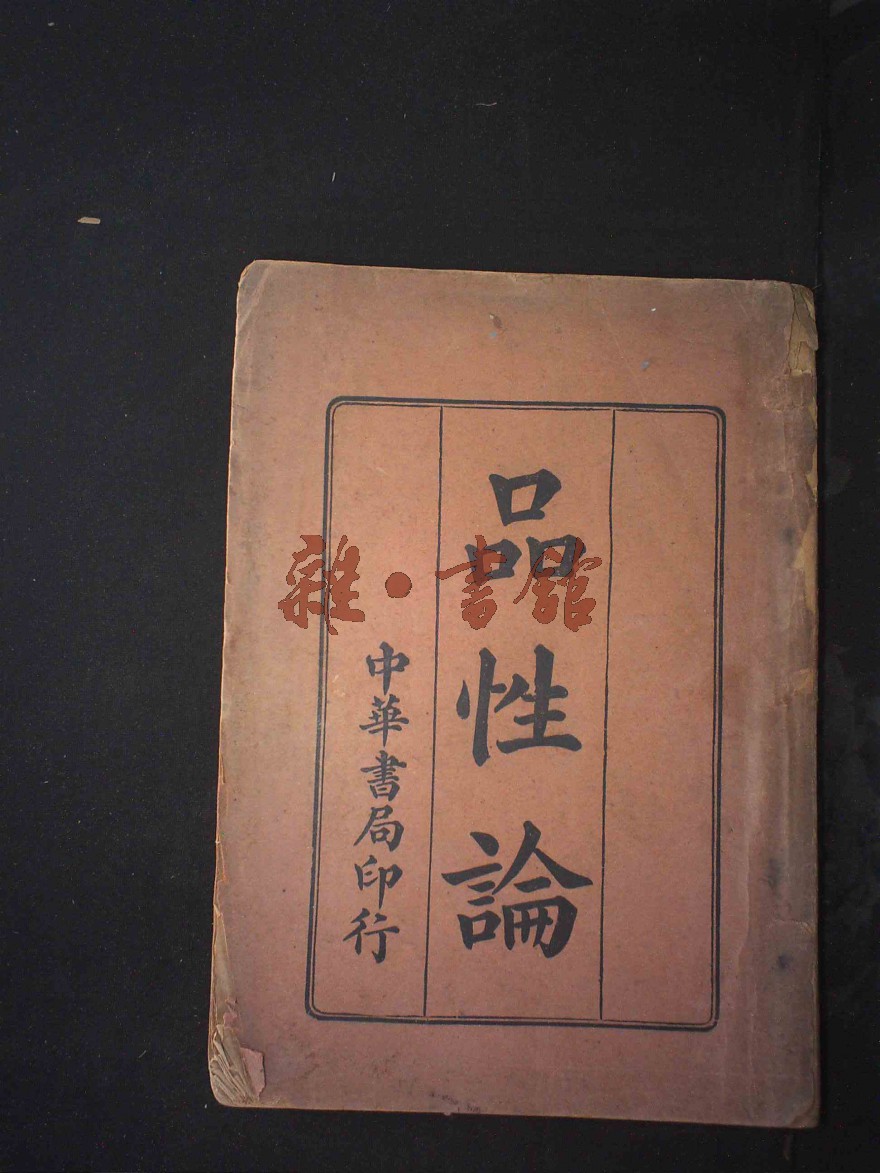 品性論
中華書局印行
雜·書館